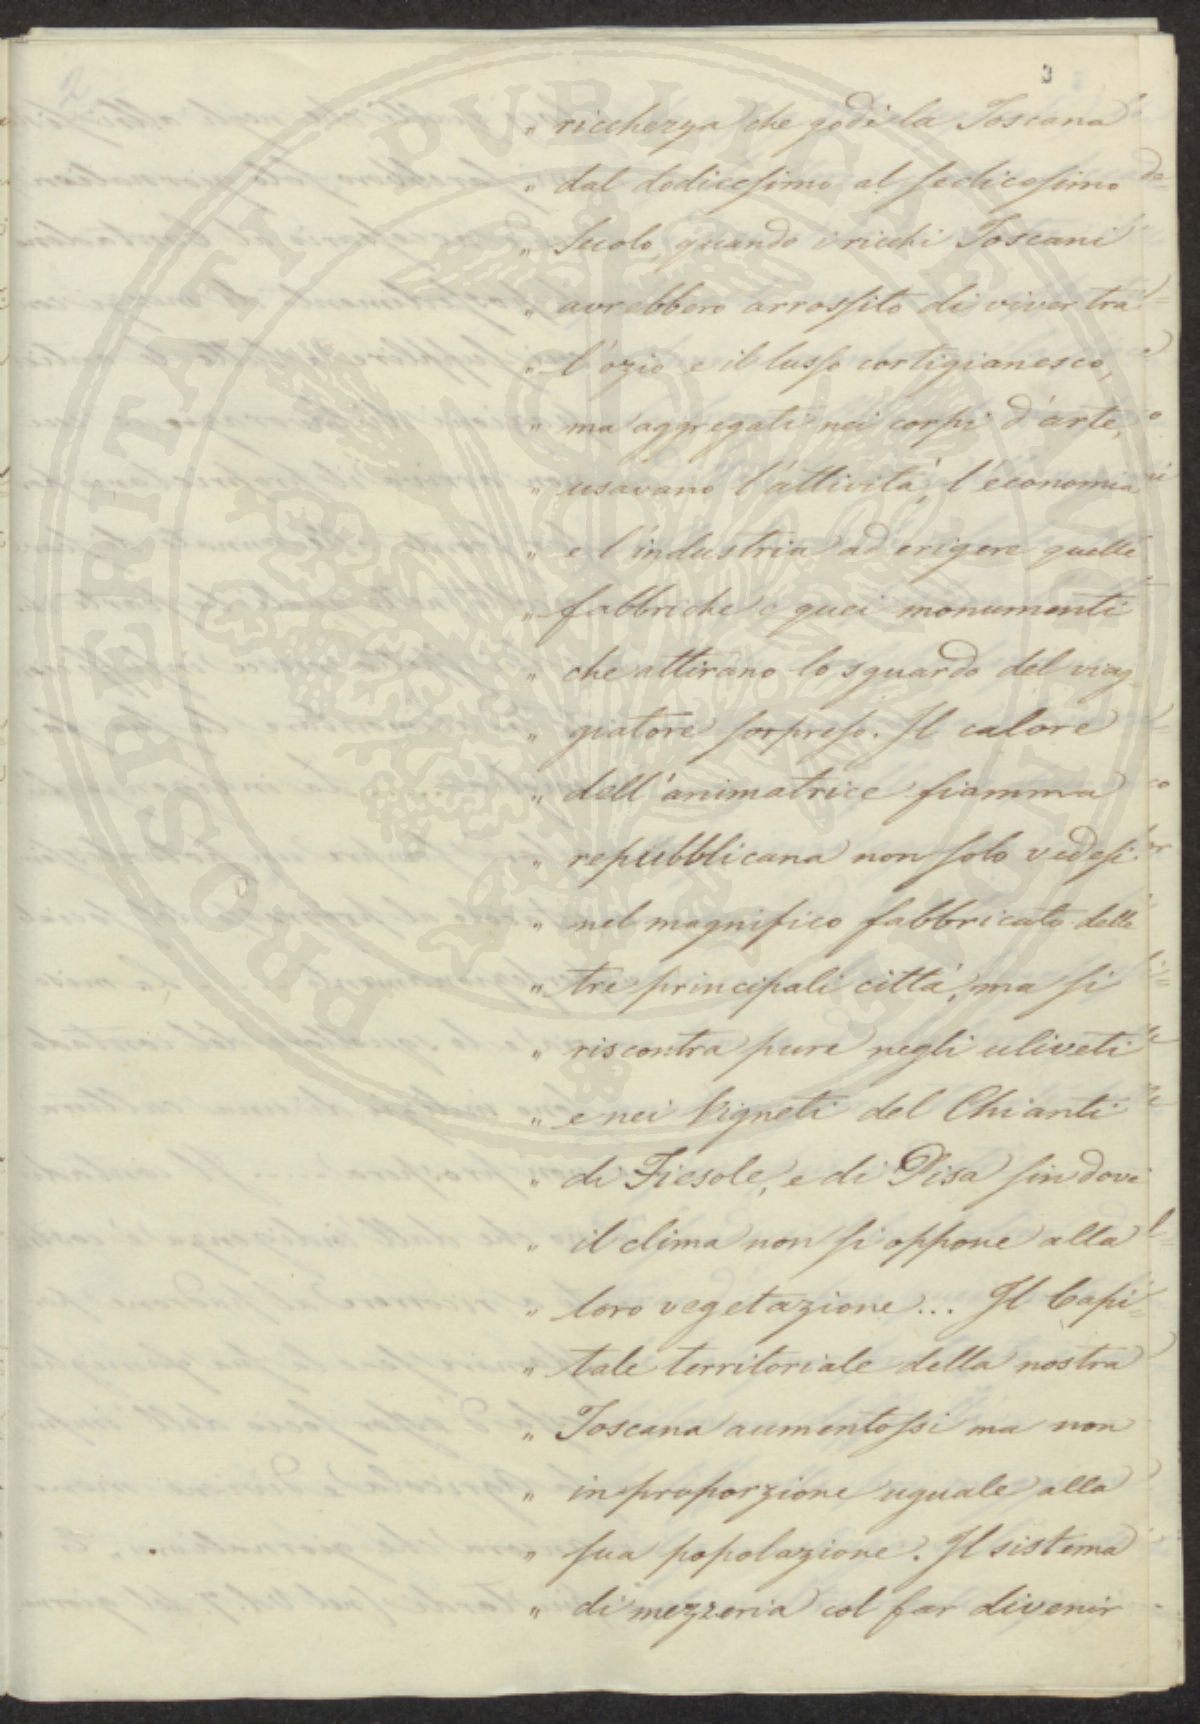 3
" ricchezza che godè la Toscana
" dal dodicesimo al sedicesimo
" Secolo, quando i ricchi Toscani
" avrebbero arrossito di viver tra
" l'ozio e il lusso cortigianesco,
" ma aggregati nei corpi d'arte,
" usavano l'attività, l'economia
" e l'industria ad erigere quelle
" fabbriche e quei monumenti
" che attirano lo sguardo del viag-
" giatore sorpreso. Il calore
" dell'animatrice fiamma
" repubblicana non solo vedesi
" nel magnifico fabbricato delle
" tre principali città, ma si
" riscontra pure negli uliveti
" e nei Vigneti del Chianti
" di Fiesole, e di Pisa sin dove
" il clima non si oppone alla
" loro vegetazione... Il Capi-
" tale territoriale della nostra
" Toscana aumentossi ma non
" in proporzione uguale alla
" sua popolazione. Il sistema
" di mezzeria col far divenir
PROSPERITATI PVBLICAE AVGENDAE